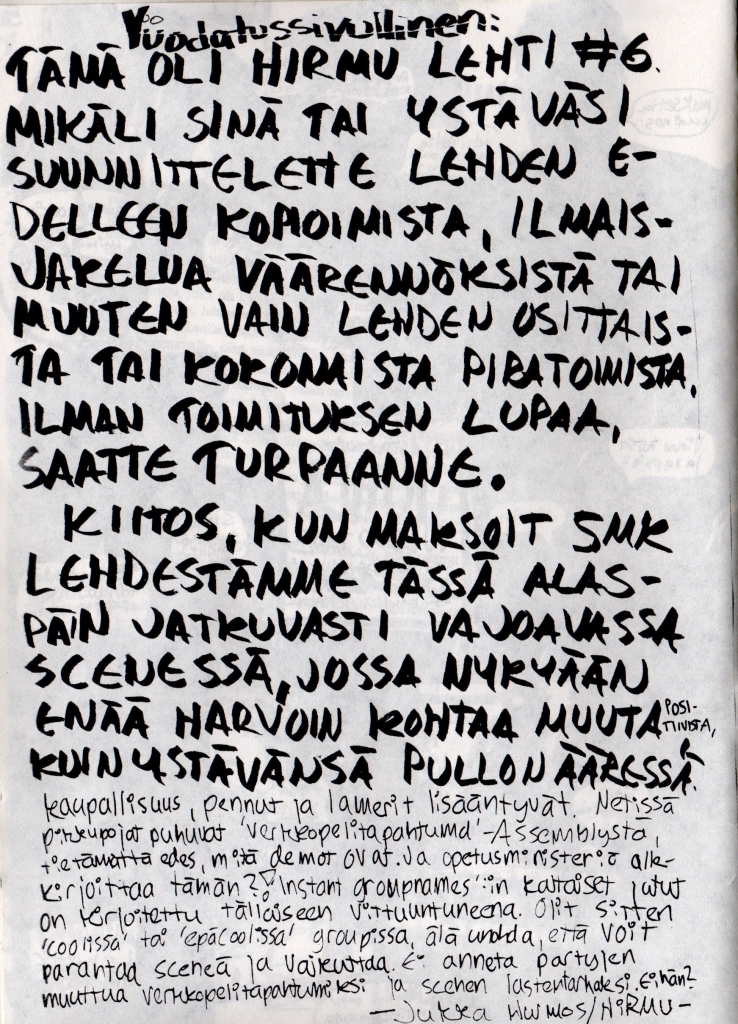 Vuodatussivullinen:
TÄMÄ OLI HIRMU LEHTI #6.
MIKÄLI SINÄ TAI YSTÄVÄSI
SUUNNITTELETTE LEHDEN E-
DELLEEN KOPIOIMISTA, ILMAIS-
JAKELUA VÄÄRENNÖKSISTÄ TAI
MUUTEN VAIN LEHDEN OSITTAIS-
TA TAI KOKONAISTA PIRATOIMISTA,
ILMAN TOIMITUKSEN LUPAA,
SAATTE TURPAANNE.
KIITOS, KUN MAKSOIT 5MK
LEHDESTÄMME TÄSSÄ ALAS-
PÄIN JATKUVASTI VAJOAVASSA
SCENESSÄ, JOSSA NYKYÄÄN
ENÄÄ HARVOIN KOHTAA MUUTA POSI-
TIIVISTA,
KUIN YSTÄVÄNSÄ PULLON ÄÄRESSÄ.
kaupallisuus, pennut ja lamerit lisääntyvät. Netissä
pikkupojat puhuvat 'verkkopelitapahtuma'-Assemblystä,
tietämättä edes, mitä demot ovat. Ja opetusministeriö alle-
kirjoittaa tämän?! 'Instant groupnames':in kaltaiset jutut
on kirjoitettu tällaiseen vittuuntuneena. Olit sitten
'coolissa' tai 'epäcoolissa' groupissa, älä unohda, että voit
parantaa sceneä ja vaikuttaa. Ei anneta partyjen
muuttua verkkopelitapahtumiksi ja scenen lastentarhaksi. Eihän?
-Jukka /HiRMU-